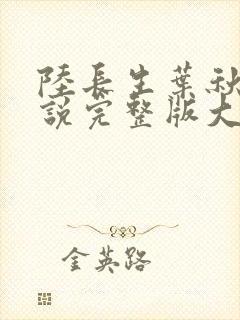 陸長生葉秋
說完整版大
金英路